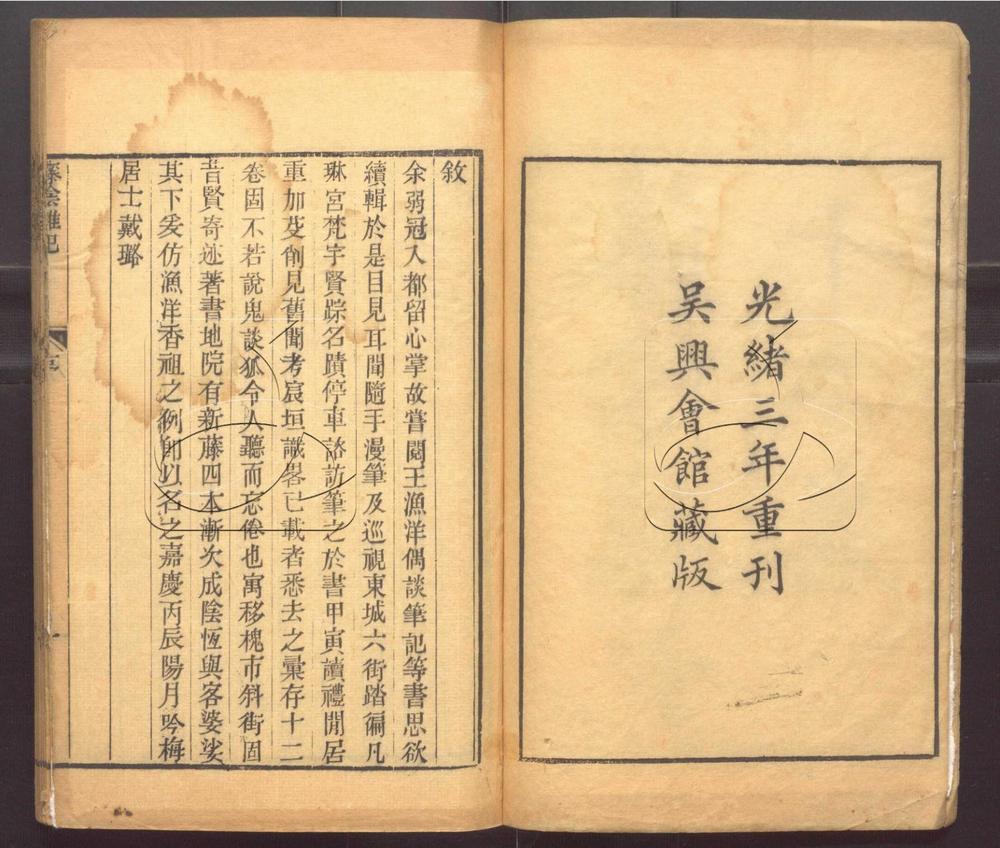 光緒三年重刊
吳興會館藏版
敘
余弱冠入都留心掌故嘗閱王漁洋偶談筆記等書思欲
續輯於是目見耳聞隨手漫筆及巡視東城六街踏徧凡
琳宮梵宇賢踪名蹟停車諮訪筆之於書甲寅讀禮閒居
重加芟削見舊聞考宸垣識畧已載者悉去之彙存十二
卷固不若說鬼談狐令人聽而忘倦也寓移槐市斜街固
昔賢寄迹著書地院有新藤四本漸次成陰恆與客婆娑
其下爰仿漁洋香祖之例即以名之嘉慶丙辰陽月吟梅
居士戴璐
藤陰雜記
序
一